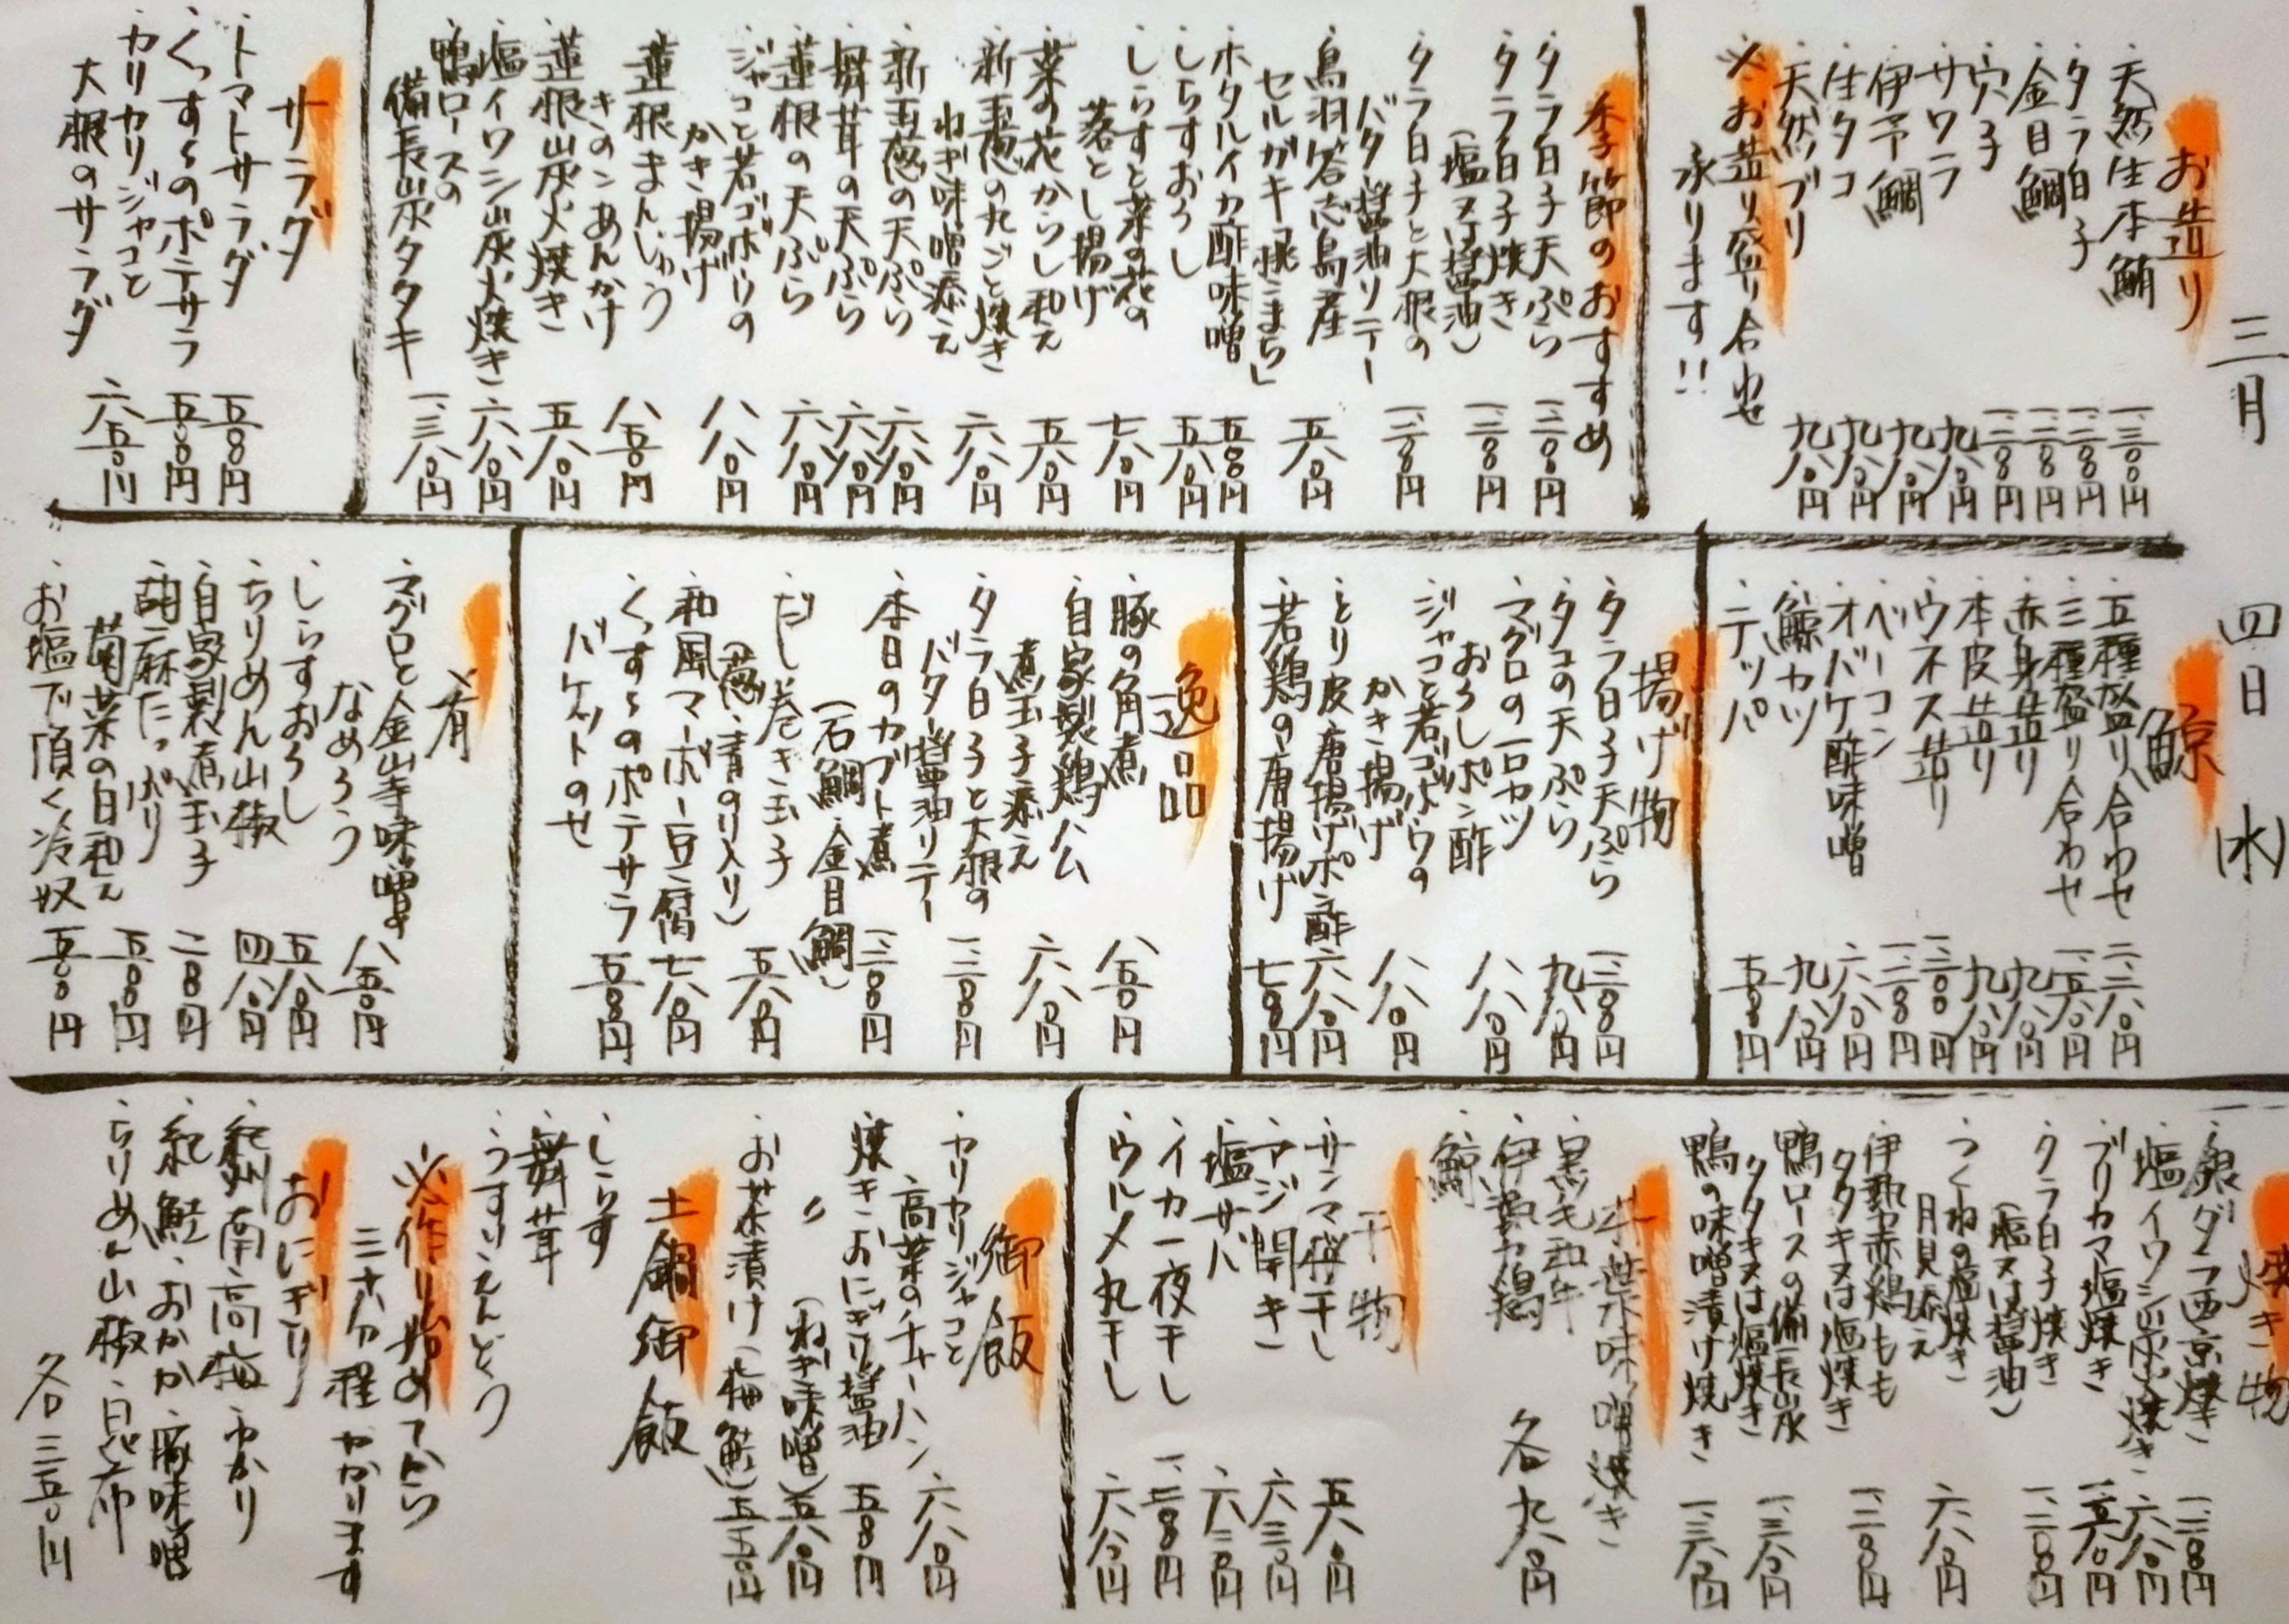 三月 四日(水)
お造り
・天然生本鮪 一、三〇〇円
・タラ白子 一、二〇〇円
・金目鯛 一、二〇〇円
・穴子 一、二〇〇円
・サワラ 九八〇円
・伊予鯛 九八〇円
・生タコ 九八〇円
・天然ブリ 九八〇円
※お造り盛り合わせ
承ります!!
季節のおすすめ
・タラ白子天ぷら 一、二〇〇円
・タラ白子焼き
(塩又は醤油) 一、二〇〇円
・タラ白子と大根の
バター醤油ソテー 一、二〇〇円
・鳥羽答志島産
セルガキ「桃こまち」 五八〇円
・ホタルイカ酢味噌 五〇〇円
・しらすおろし 五八〇円
・しらすと菜の花の
落とし揚げ 七八〇円
・菜の花からし和え 五八〇円
・新玉葱の丸ごと焼き
ねぎ味噌添え 六八〇円
・新玉葱の天ぷら 六八〇円
・舞茸の天ぷら 六八〇円
・蓮根の天ぷら 六八〇円
・ジャコと若ゴボウの
かき揚げ 八八〇円
・蓮根まんじゅう
きのこあんかけ 八五〇円
・蓮根炭火焼き 五八〇円
・塩イワシ炭火焼き 六八〇円
・鴨ロースの
備長炭タタキ 一、三八〇円
サラダ
・トマトサラダ 五〇〇円
・くすくすのポテサラ 五〇〇円
・カリカリジャコと
大根のサラダ 六五〇円
鯨
・五種盛り合わせ 二、三八〇円
・三種盛り合わせ 一、五八〇円
・赤身造り 九八〇円
・本皮造り 九八〇円
・ウネス造り 一、二〇〇円
・ベーコン 一、二〇〇円
・オバケ酢味噌 六八〇円
・鯨カツ 九八〇円
・テッパ 五〇〇円
揚げ物
・タラ白子天ぷら 一、二〇〇円
・タコの天ぷら 九八〇円
・マグロの一口カツ
おろしポン酢 八八〇円
・ジャコと若ゴボウの
かき揚げ 八八〇円
・とり皮唐揚げポン酢 六八〇円
・若鶏の唐揚げ 七〇〇円
逸品
・豚の角煮 八五〇円
・自家製鶏ハム
煮玉子添え 六八〇円
・タラ白子と大根の
バター醤油ソテー 一、二〇〇円
・本日のカブト煮
(石鯛・金目鯛) 一、二〇〇円
・だし巻き玉子
(葱・青のり入り) 五八〇円
・和風マーボー豆腐 七八〇円
・くすくすのポテサラ
バケットのせ 五〇〇円
肴
・マグロと金山寺味噌の
なめろう 八五〇円
・しらすおろし 五八〇円
・ちりめん山椒 四八〇円
・自家製煮玉子 二〇〇円
・胡麻たっぷり
菊菜の白和え 五〇〇円
・お塩で頂く冷奴 五〇〇円
焼き物
・銀ダラ西京焼き 一、二〇〇円
・塩イワシ炭火焼き 六八〇円
・ブリカマ塩焼き 一、五八〇円
・タラ白子焼き
(塩又は醤油) 一、二〇〇円
・つくねの塩焼き
月見添え 六八〇円
・伊勢赤鶏もも
タタキ又は塩焼き 一、二〇〇円
・鴨ロースの備長炭
タタキ又は塩焼き 一、三八〇円
・鴨の味噌漬け焼き 一、三八〇円
味噌焼き
・黒毛和牛
・伊勢赤鶏
・鯨
各 九八〇円
干物
・サンマ桜干し 五八〇円
・アジ開き 六三〇円
・塩サバ 六三〇円
・イカ一夜干し 一、二〇〇円
・ウルメ丸干し 六八〇円
御飯
・カリカリジャコと
高菜のチャーハン 六八〇円
・焼きおにぎり醤油 五〇〇円
〃 (ねぎ味噌) 五八〇円
・お茶漬け(梅・鮭) 五五〇円
土鍋御飯
・しらす
・舞茸
・うすいえんどう
※作り始めてから
三十分程かかります
おにぎり
・紀州南高梅・ゆかり
・紅鮭・おかか・麻味噌
・ちりめん山椒・昆布
各三五〇円